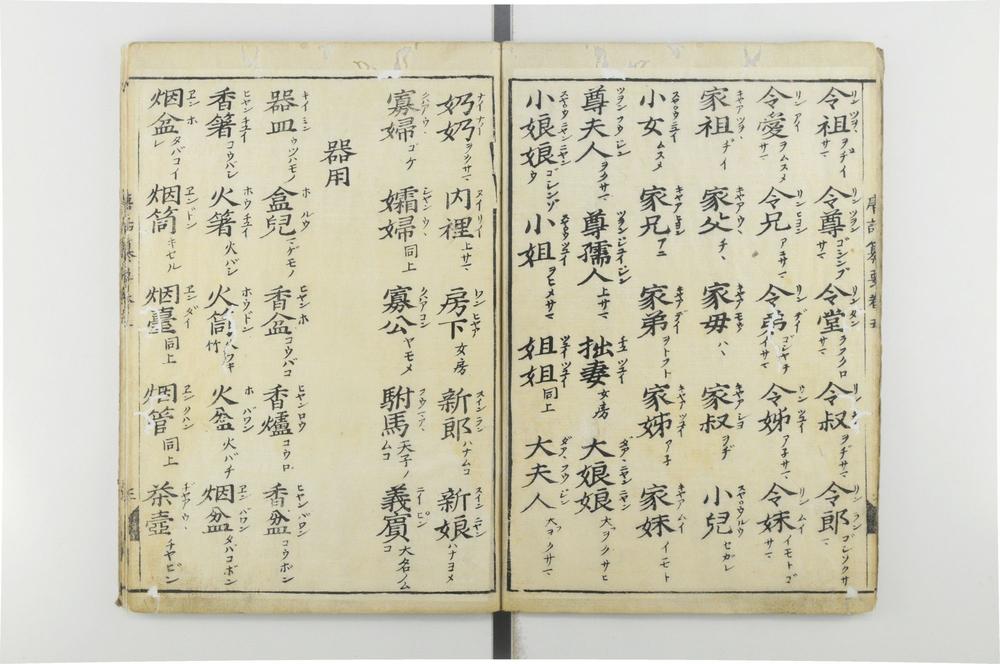 令祖 リンツヲヽ ヲヂイサマ 令尊 リンツヲン ゴシンブサマ 令堂 リンダン ヲフクロサマ 令叔 ヲヂサマ 令郎 リンラン ゴシソクサマ
令愛 リンアイ ヲムスメ 令兄 リンヒヨン アニサマ 令弟 リンデイ ゴシヤテイサマ 令姊 リンツエイ アネサマ 令妹 リンムイ イモトゴサマ
家祖 キヤアツヲヽ ヂイ 家父 キヤアウヽ チヽ 家母 キヤアモウ ハヽ 家叔 ヲヂ 小兒 スヤウルウ セガレ
小女 スヤウニイ ムスメ 家兄 キヤアヒヨン アニ 家弟 キヤアデイ ヲトフト 家姊 キヤアツエイ アネ 家妹 キヤアムイ イモト
尊夫人 ツヲンフウジン ヲクサマ 尊孺人 ツヲンジユイジン 上サマ 拙妻 女房 大娘娘 ダアヽニヤンニヤン 大ヲクサマ
小娘娘 スヤウニヤンニヤン 小姐 スヤウツエイ ヲヒメサマ 姐姐 ツエイツエイ 同上 大夫人 ダアヽフウジン 大ヲクサマ
唐話纂要卷五
奶奶 ナイナイ ヲクサマ 内裡 ヌイリイ 上サマ 房下 ワンヒヤア 女房 新郎 スインラン ハナムコ 新娘 スインニヤン ハナヨメ
寡婦 クハアウヽ ゴケ 孀婦 シヤンウヽ 同上 寡公 クハアコン ヤモメ 駙馬 フウマアヽ 天子ノムコ 義賓 ニイピン 大名ノムコ
器用
器皿 キイミン ウツハモノ 盒兒 ホルウ マゲモノ 香盒 ヒヤンホ コウバコ 香爐 ヒヤンロウ コウロ 香盆 ヒヤンバワン コウボン
香箸 ヒヤンチユイ コウバシ 火箸 ホウチユイ 火バシ 火筒 ホウドン 火フキ竹 火盆 ホバワン 火バチ 烟盆 ヱンバワン タバコボン
烟盒 ヱンホ タバコイレ 烟筒 ヱンドン キセル 烟臺 ヱンダイ 同上 烟管 ヱンクハン 同上 茶壺 ヂヤアウヽ チヤビン